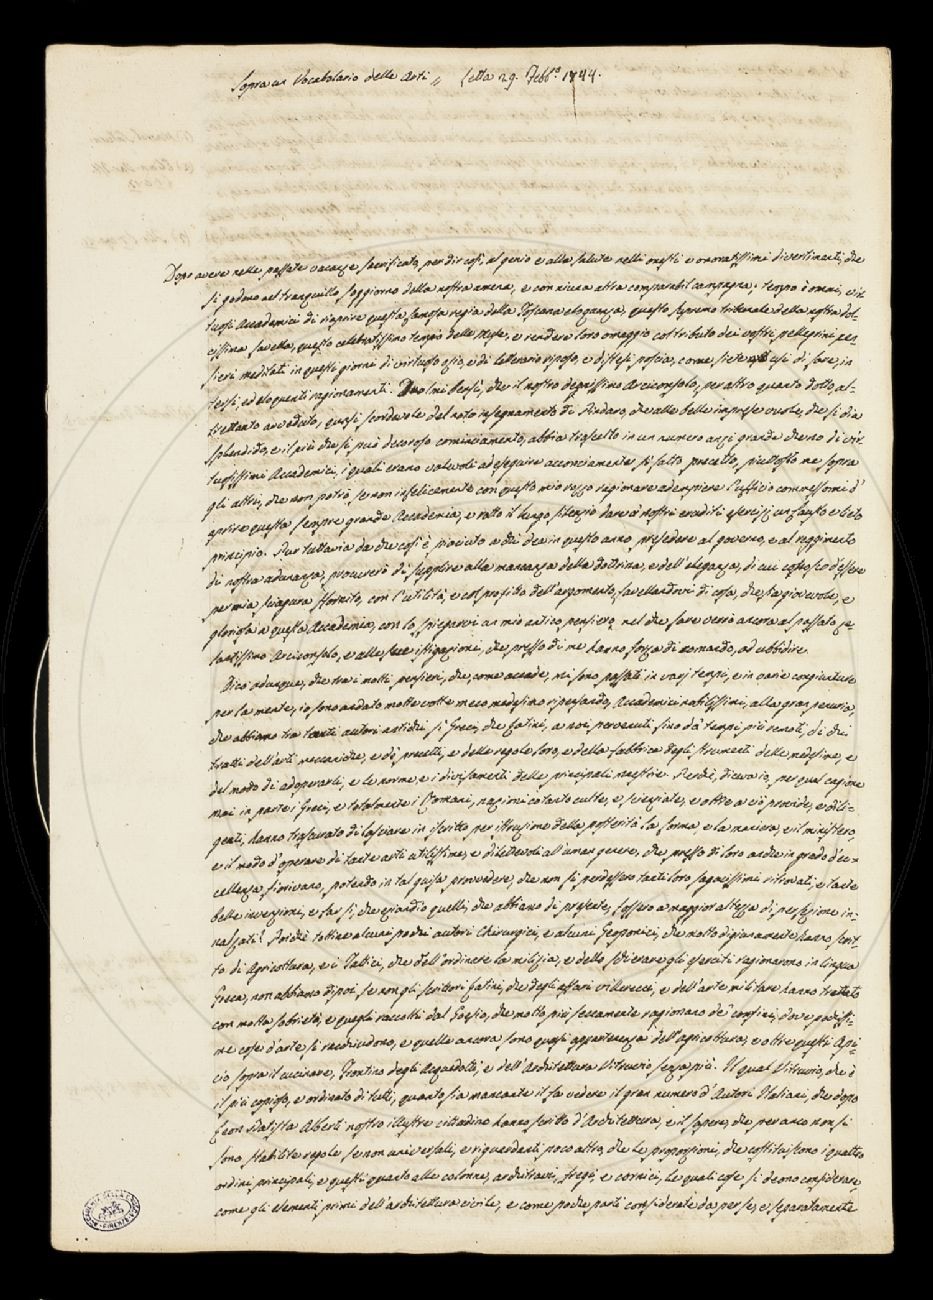 Sopra un Vocabolario delle Arti „ Letta 29. Febb.º 1744.
Dopo avere nelle passate vacanze sacrificato, per dir così, al genio e alla salute nelli onesti e onoratissimi divertimenti, che
si godono nel tranquillo soggiorno della nostra amena, e con niuna altra comparabil campagna; tempo è omai, vir-
tuosi Accademici di riaprire questa famosa regia della Toscana eloquenza, questo supremo tribunale della nostra dol-
cissima favella, questo celebratissimo tempio delle Muse, e rendere loro omaggio col tributo dei vostri pellegrini pen-
sieri meditati in questi giorni di virtuoso ozio, e di letterario riposo, e distesi poscia, come siete usi di fare, in
tersi, ed eloquenti ragionamenti. Duolmi bensì, che il nostro degnissimo Arciconsolo, per altro quanto dotto, al-
trettanto avveduto, quasi scordevole del noto insegnamento di Pindaro, che alle belle imprese vuole, che si dia
splendido, e il più che si può decoroso cominciamento, abbia trascelto in un numero anzi grande che no di vir-
tuosissimi Accademici, i quali erano valevoli ad eseguire acconciamente sì fatto precetto, piuttosto me sopra
gli altri, che non potrò se non infelicemente con questo mio rozzo ragionare adempiere l'uffizio commessomi d'
aprire questa sempre grande Accademia, e rotto il lungo silenzio dare a' nostri eruditi esercizj un fausto e lieto
principio. Pur tuttavia da che così è piaciuto a chi dee in questo anno presedere al governo, e al reggimento
di nostra adunanza, procurerò di supplire alla mancanza della dottrina, e dell'eleganza, di cui conosco d'essere
per mia sciagura sfornito, con l'utilità, e col profitto dell'argomento, favellandovi di cosa, che sia giovevole, e
gloriosa a questa Accademia, con lo spiegarvi un mio antico pensiero, nel che fare verrò ancora al passato ze-
lantissimo Arciconsolo, e alle sue istigazioni, che presso di me hanno forza di comando, ad ubbidire.
Dico adunque, che tra i molti pensieri, che, come accade, mi sono passati in varj tempi, e in varie congiunture
per la mente, io sono andato molte volte meco medesimo ripensando, Accademici nobilissimi, alla gran penuria,
che abbiamo tra tanti autori antichi sì Greci, che Latini, a noi pervenuti fino da' tempi più remoti, di chi
tratti dell'arti meccaniche, e de' precetti, e delle regole loro, e della fabbrica degli strumenti delle medesime, e
del modo di adoperarli, e le norme, e i divisamenti delle principali maestrie. Perchè, diceva io, per qual cagione
mai in parte i Greci, e totalmente i Romani, nazioni cotanto culte, e scienziate, e oltre a ciò provide, e dili-
genti, hanno trascurato di lasciare in iscritto per istruzione della posterità la forma, e la maniera, e il ministero
e il modo d'operare di tante arti utilissime, e dilettevoli all'uman genere, che presso di loro anche in grado d'ec-
cellenza fiorivano, potendo in tal guisa provvedere, che non si perdessero tanti loro sagacissimi ritrovati, e tante
belle invenzioni, e far sì, che eziandio quelli, che abbiamo di presente, fossero a maggior altezza di perfezione in-
nalzati? Poichè toltine alcuni pochi autori Chirurgici, e alcuni Geoponici, che molto digiunamente hanno scrit-
to di Agricoltura, e i Tattici, che dell'ordinare la milizia, e dello schierare gli eserciti ragionarono in lingua
Greca, non abbiamo dipoi se non gli scrittori Latini, che degli affari villerecci, e dell'arte militare hanno trattato
con molta sobrietà, e quegli raccolti dal Goesio, che molto più seccamente ragionano de' confini, dove pochissi-
me cose d'arte si racchiudono, e quelle ancora sono quasi appartenenza dell'agricoltura, e oltre questi Api-
cio sopra il cucinare, Frontino degli Acquedotti, e dell'Architettura Vitruvio senza più. Il qual Vitruvio, che è
il più copioso, e ordinato di tutti, quanto sia mancante il fa vedere il gran numero d'Autori Italiani, che dopo
Leon Batista Alberti nostro illustre cittadino hanno scritto d'Architettura, e il sapere, che per anco non si
sono stabilite regole se non universali, e riguardanti poco altro, che le proporzioni, che costituiscono i quattro
ordini principali, e questi quanto alle colonne, architravi, fregi, e cornici, le quali cose si deono considerare
come gli elementi primi dell'architettura civile, e come poche parti considerate da per se, e separatamente